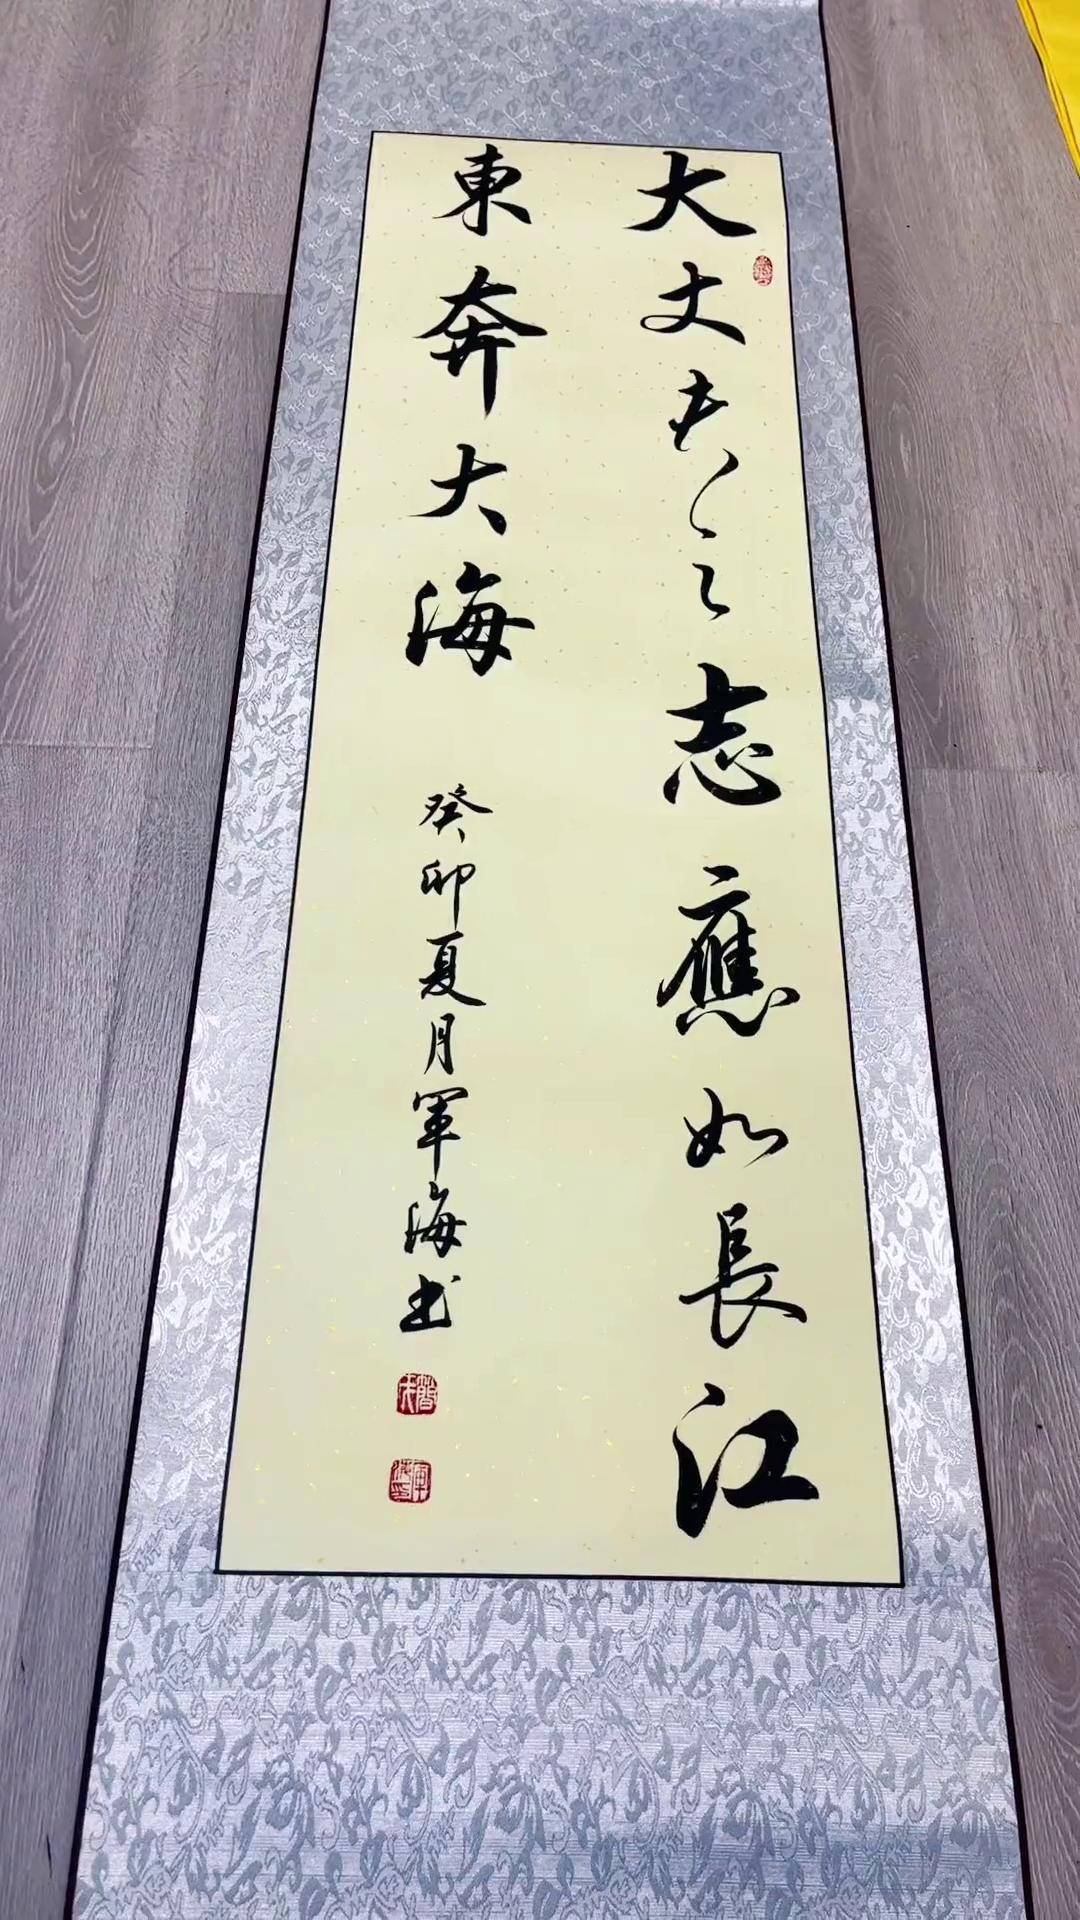 大丈夫之志應如長江
東奔大海
癸卯夏月軍海书